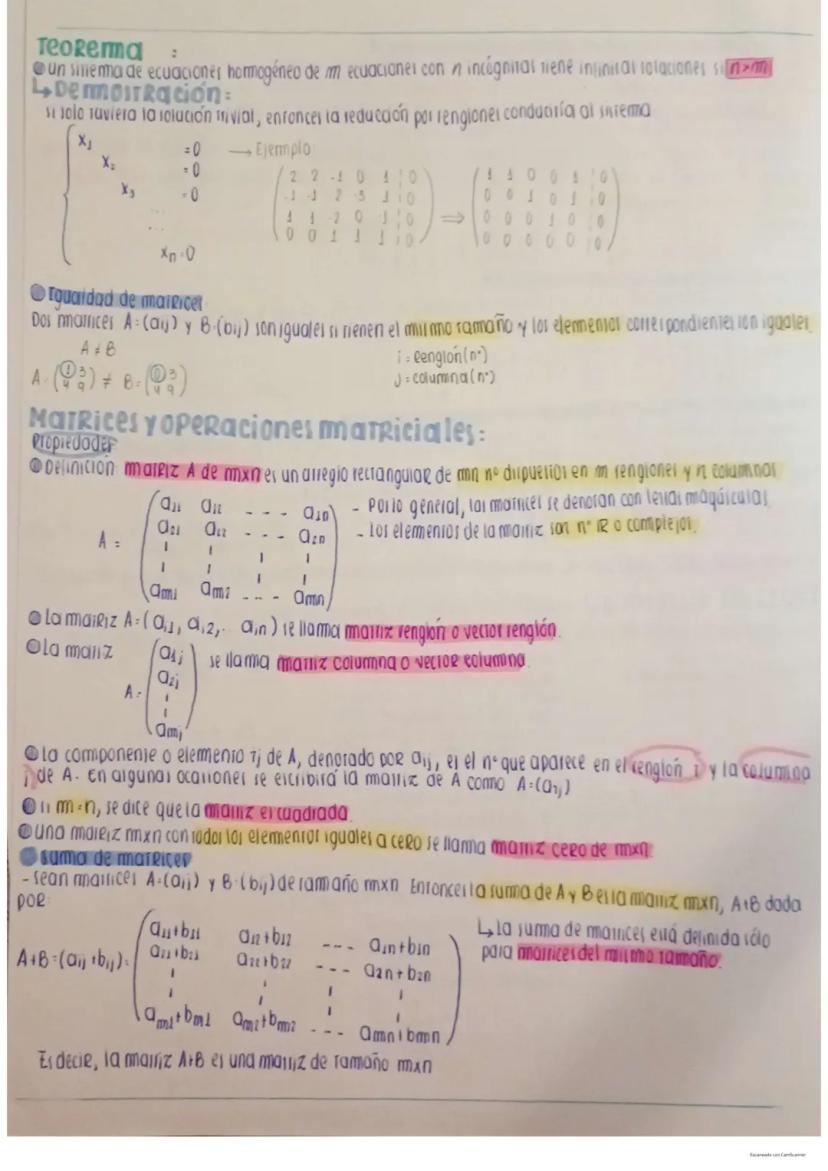 Teorema :
Un sistema de ecuaciones homogéneo de m ecuaciones con n incógnitas tiene infinitas soluciones si n>m
↳Demostración:
si solo tuviera la solución trivial, entonces la reducción por renglones conduciría al sistema
x₁ =0 → Ejemplo
x₂ =0
x₃ =0
...
xn=0
2 2 -1 0 1 ¦ 0
-1 -1 2 -3 1 ¦ 0
1 1 -2 0 -1 ¦ 0
0 0 1 1 1 ¦ 0
⇒
1 1 0 0 1 ¦ 0
0 0 1 0 1 ¦ 0
0 0 0 1 0 ¦ 0
0 0 0 0 0 ¦ 0
Igualdad de matrices
Dos matrices A=(aij) y B=(bij) son iguales si tienen el mismo tamaño y los elementos correspondientes son iguales.
A ≠ B
i = Renglón (n°)
A = (① 3 4 9) ≠ B = (⓪ 3 4 9)
j = columna (n°)
Matrices y operaciones matriciales:
Propiedades
Definición matriz A de mxn es un arreglo rectangular de mn n° dispuestos en m renglones y n columnas
A =
a11 a12 - - - a1n
a21 a22 - - - a2n
am1 am2 - - - amn
- Por lo general, las matrices se denotan con letras mayúsculas
- Los elementos de la matriz son n° IR o complejos.
La matriz A=(ai1, ai2,.. ain) se llama matriz renglón o vector renglón.
La matriz
A=
a1j
a2j
amj
se llama matriz columna o vector columna
La componente o elemento ij de A, denotado por aij, es el n° que aparece en el renglón i y la columna
j de A. En algunas ocasiones se escribirá la matriz de A como A=(aij)
Si m=n, se dice que la matriz es cuadrada.
Una matriz mxn con todos los elementos iguales a cero se llama matriz cero de mxn.
Suma de matrices
- Sean matrices A=(aij) y B=(bij) de tamaño mxn Entonces la suma de A y B es la matriz mxn, A+B dada
por:
A+B=(aij+bij)=
a11+b11 a12+b12 - - - a1n+b1n
a21+b21 a22+b22 - - - a2n+b2n
am1+bm1 am2+bm2 - - - amn+bmn
↳La suma de matrices está definida sólo
para matrices del mismo tamaño.
Es decir, la matriz A+B es una matriz de tamaño mxn
Escaneado con CamScanner